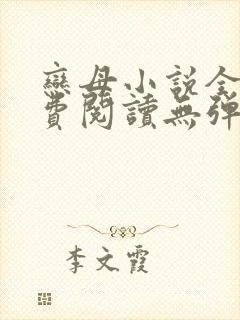 戀母小説全
費閱讀無彈
李文霞